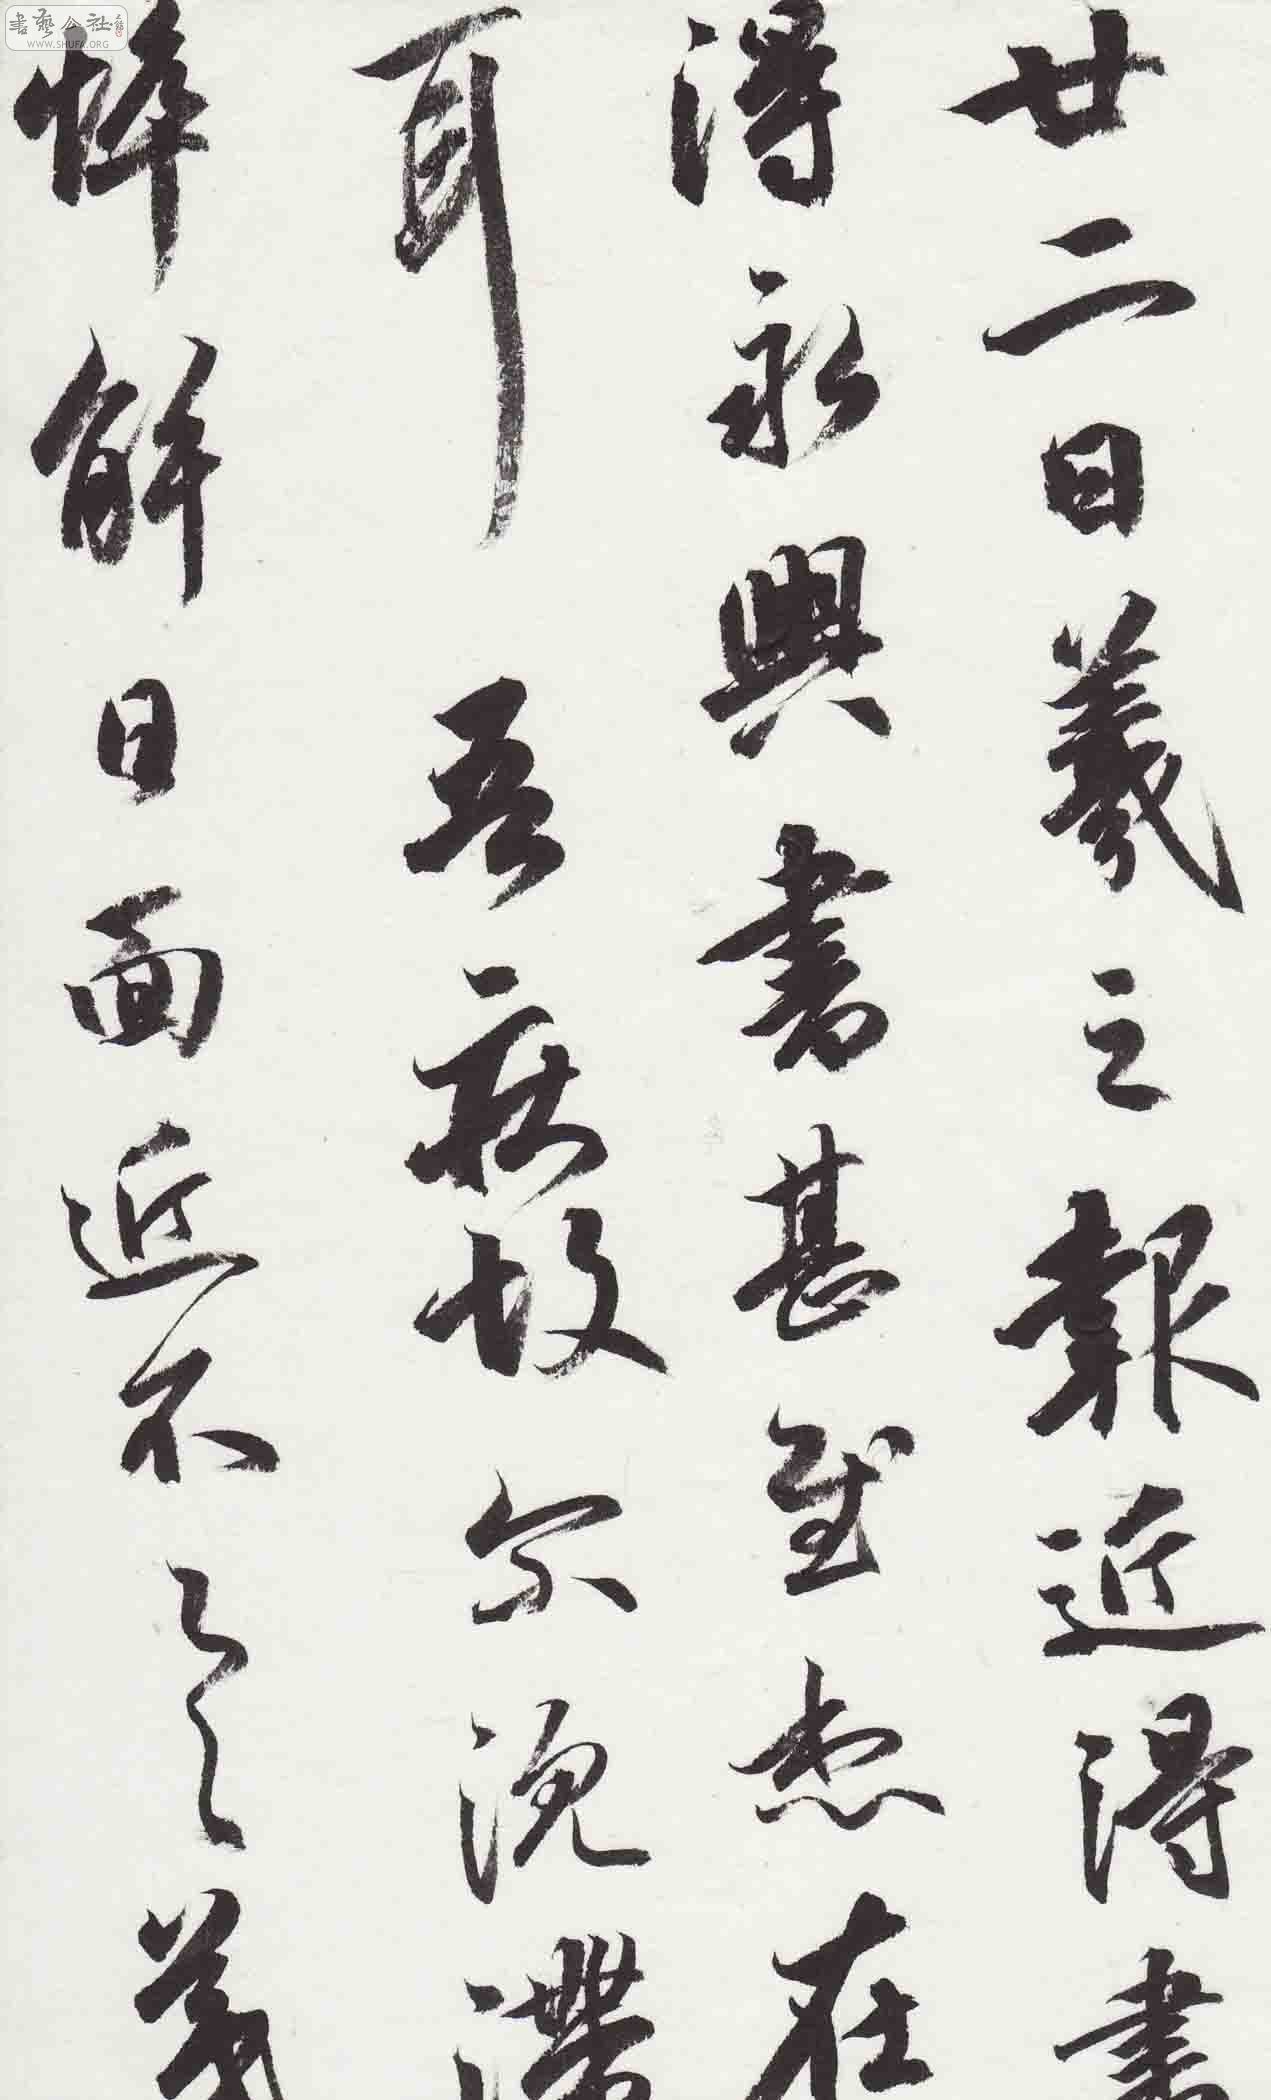 書藝公社
WWW.SHUFA.ORG
廿二日羲之報近得書
得永興書甚慰想在
耳 吾疾故尔沉滯
悴解日面近不具羲